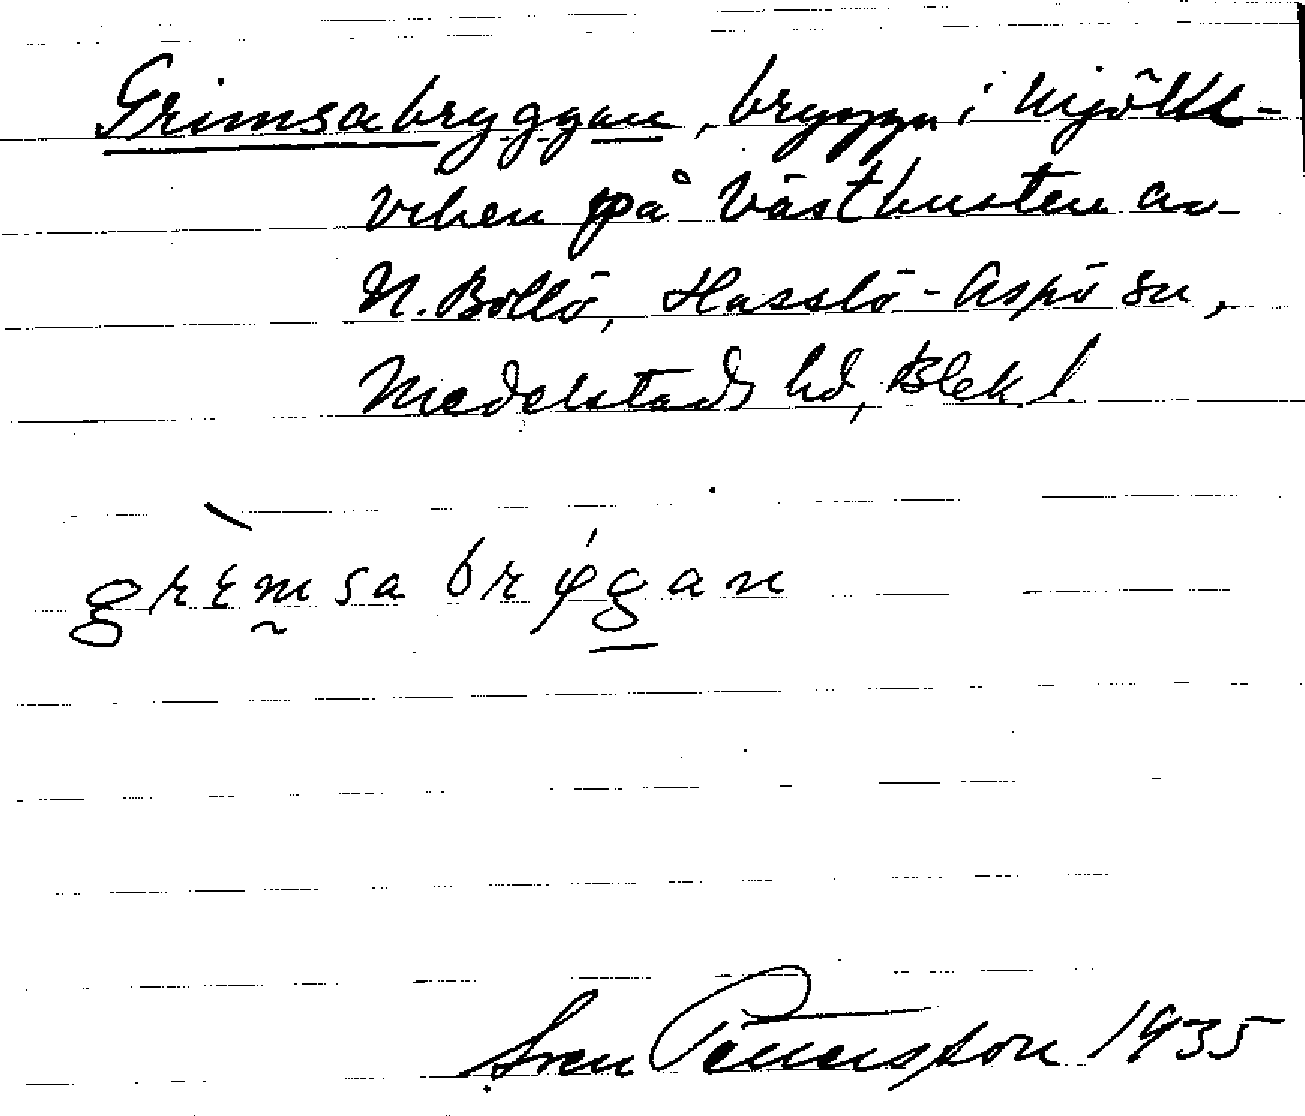 Grimsabryggan, brygga i Mjölk-
viken på Västkusten av
N. Bollö, Hasslö-Aspö sn,
Medelstads hd, Blek. l.
grɛ̀msa brýgan
Sven Pettersson 1935